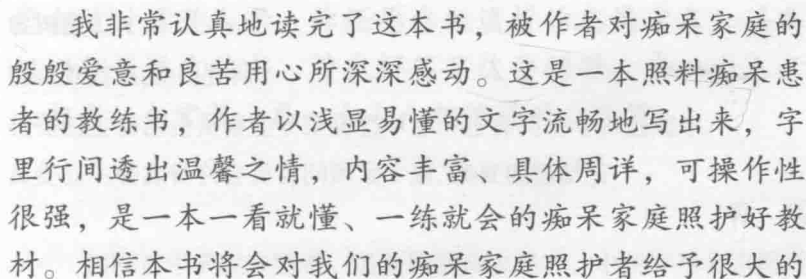 我非常认真地读完了这本书，被作者对痴呆家庭的
殷殷爱意和良苦用心所深深感动。这是一本照料痴呆患
者的教练书，作者以浅显易懂的文字流畅地写出来，字
里行间透出温馨之情，内容丰富、具体周详，可操作性
很强，是一本一看就懂、一练就会的痴呆家庭照护好教
材。相信本书将会对我们的痴呆家庭照护者给予很大的